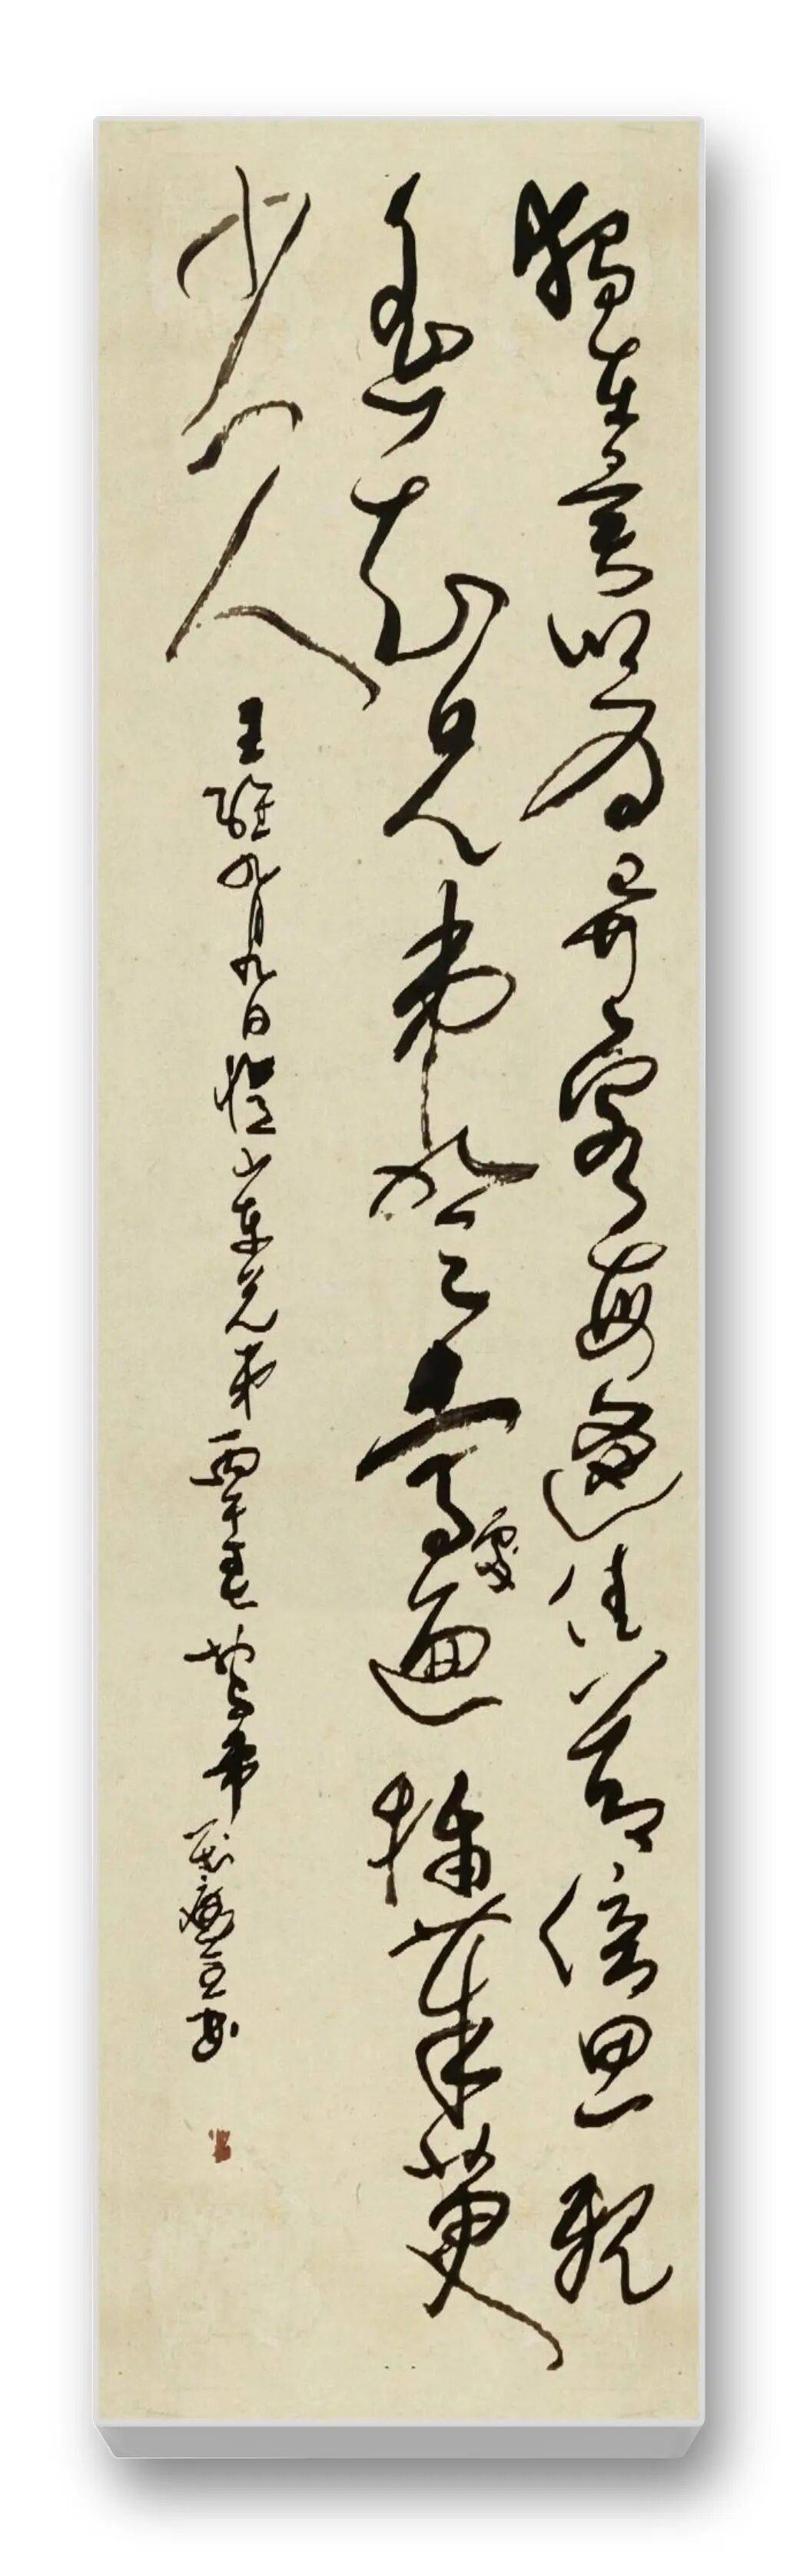 獨在異鄉為異客每逢佳節倍思親
遙知兄弟登高處遍插茱萸
少一人
王維九月九日憶山東兄弟丙午春